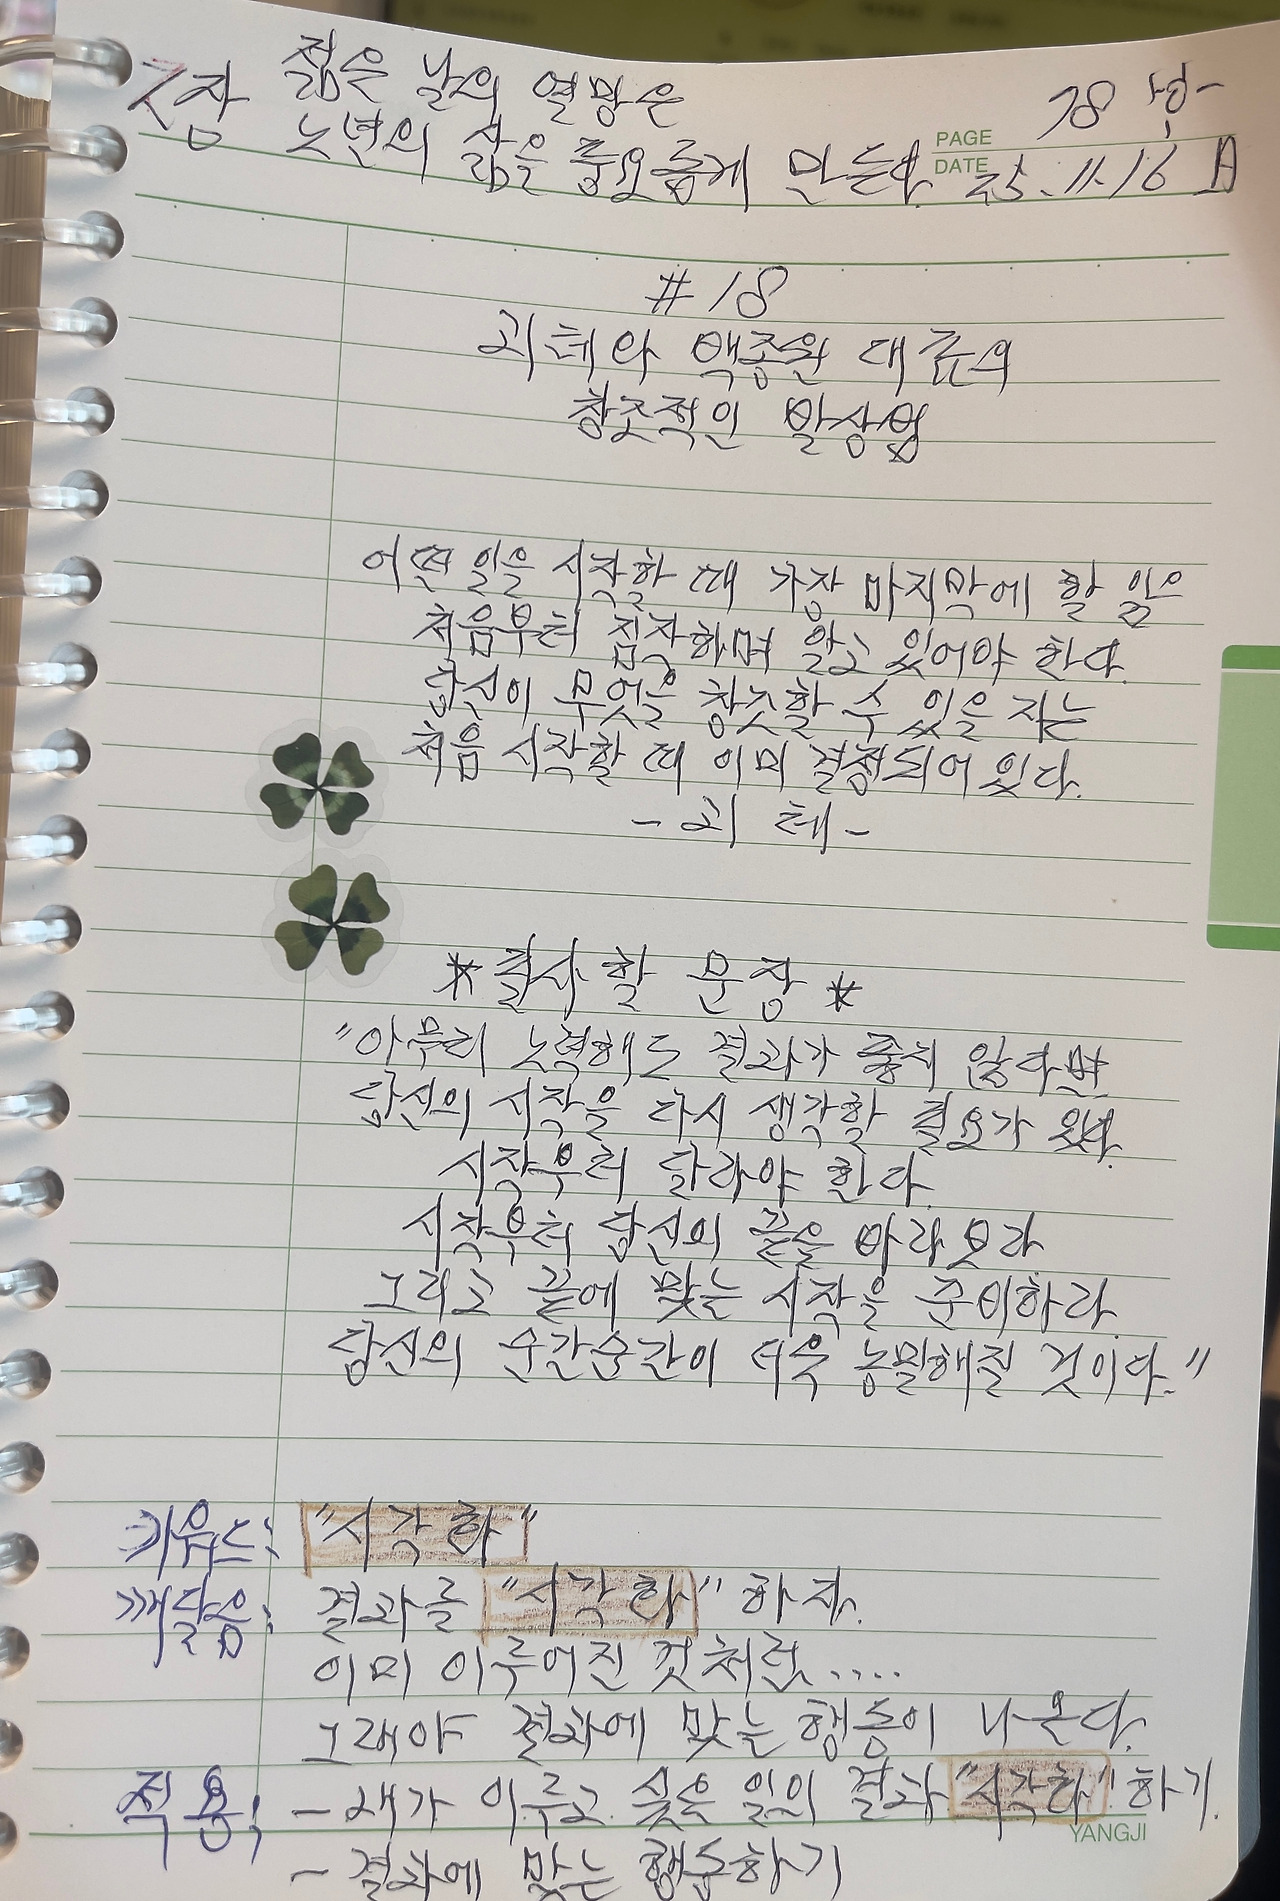 7장 젊은 날의 열망은
노년의 삶을 풍요롭게 만든다.
78
PAGE
DATE 25.11.16 일
#18
괴테와 백종원 대표의
창조적인 발상법
어떤 일을 시작할 때 가장 마지막에 할 일은
처음부터 짐작하며 알고 있어야 한다.
당신이 무엇을 창조할 수 있을 지는
처음 시작할 때 이미 결정되어 있다.
- 괴테 -
*필사할 문장*
"아무리 노력해도 결과가 좋지 않다면
당신의 시작을 다시 생각할 필요가 있다.
시작부터 달라야 한다.
시작부터 당신의 끝을 바라보라
그리고 끝에 맞는 시작을 준비하라.
당신의 순간순간이 더욱 농밀해질 것이다."
키워드: "시각화"
깨달음: 결과를 "시각화" 하자.
이미 이루어진 것처럼....
그래야 결과에 맞는 행동이 나온다.
적용: - 내가 이루고 싶은 일의 결과 "시각화" 하기.
YANGJI
- 결과에 맞는 행동하기